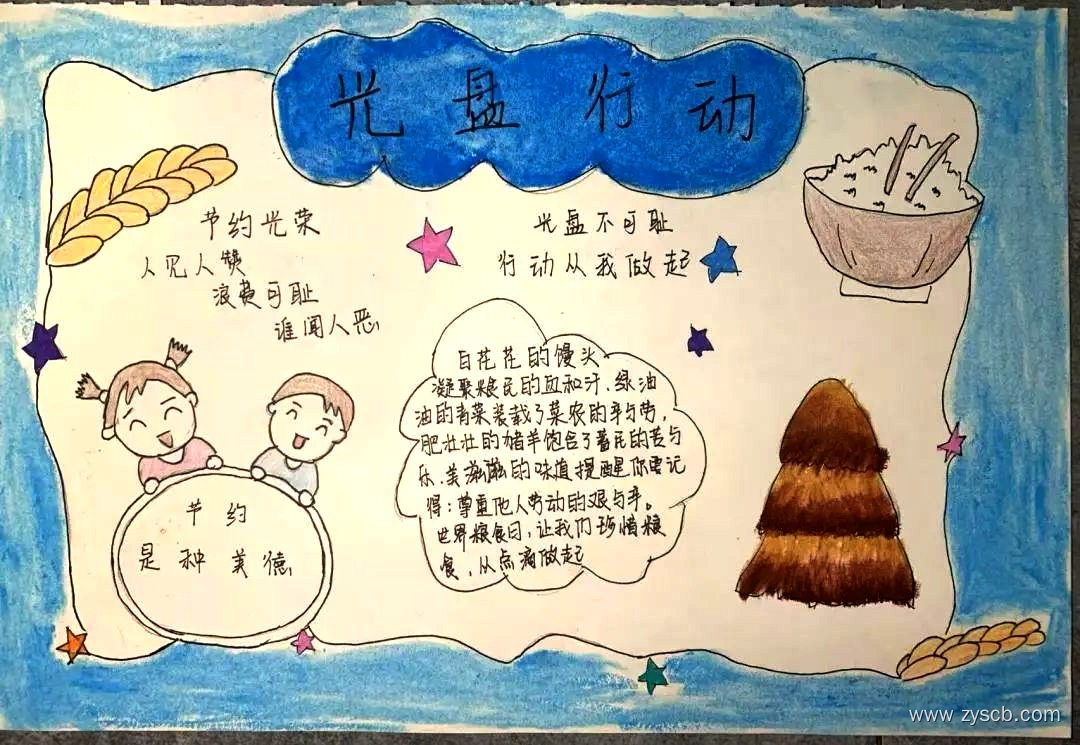 光盘行动
节约光荣
人见人赞
浪费可耻
谁闻人恶
光盘不可耻
行动从我做起
白花花的馒头
凝聚粮民的血和汗，绿油
油的青菜装载了菜农的辛与劳，
肥壮壮的猪羊饱含了蓄民的苦与
乐，美滋滋的味道提醒你要记
得：尊重他人劳动的艰与辛。
世界粮食日，让我们珍惜粮
食，从点滴做起
节约
是种美德
www.zyscb.com